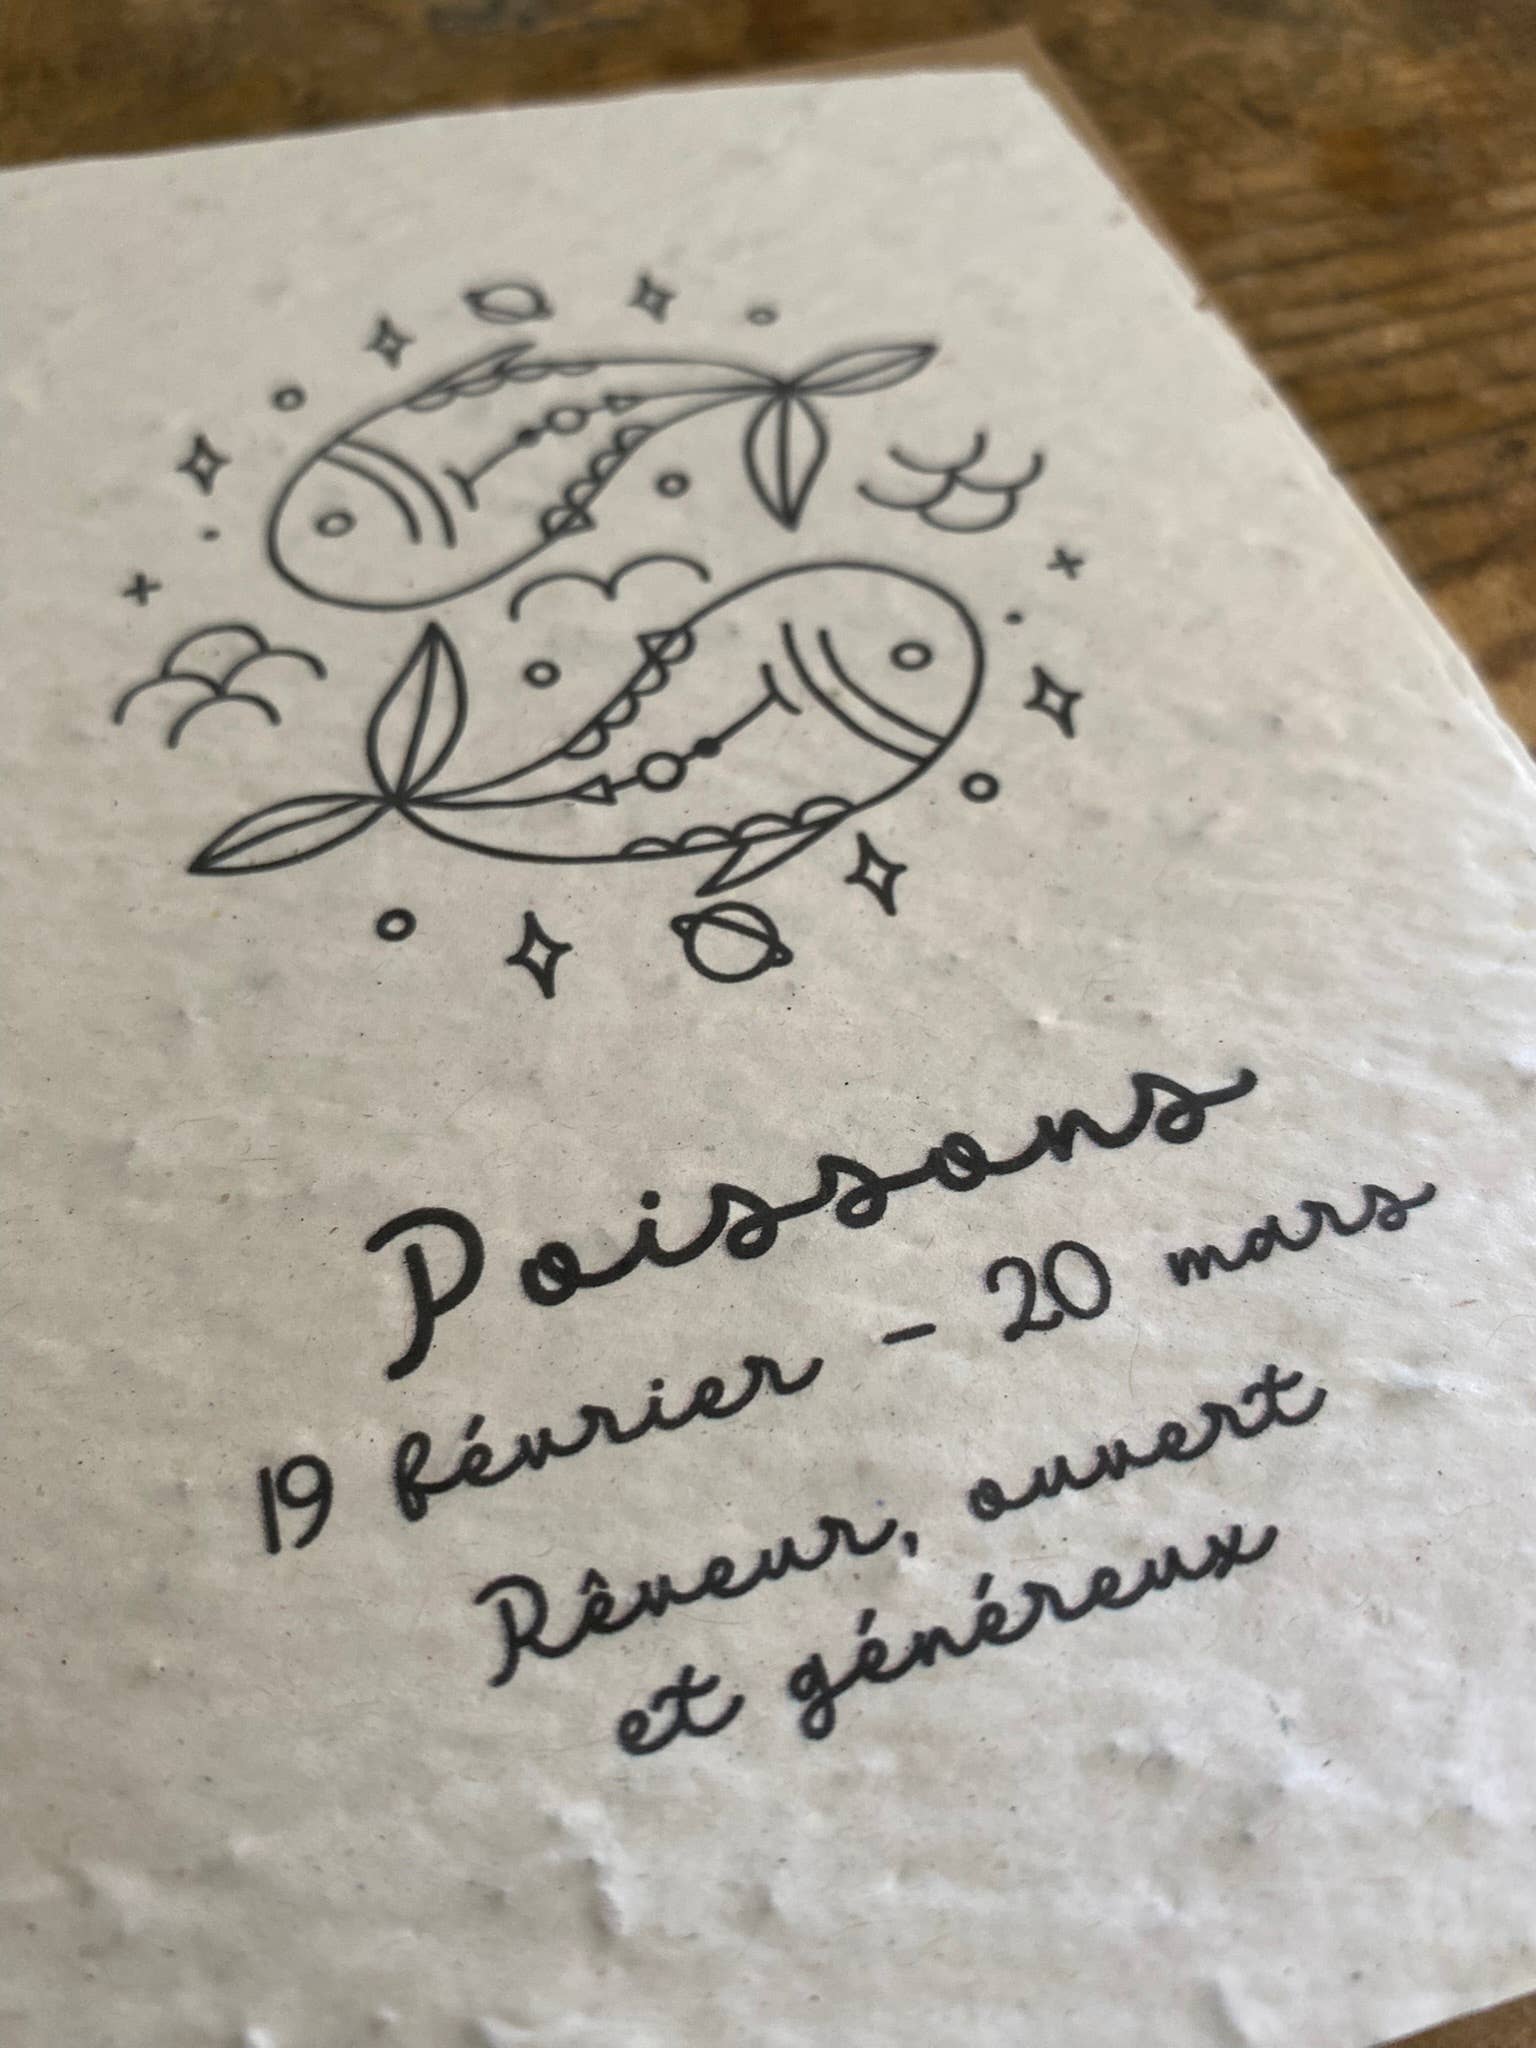 Poissons
19 février - 20 mars
Rêveur, ouvert
et généreux